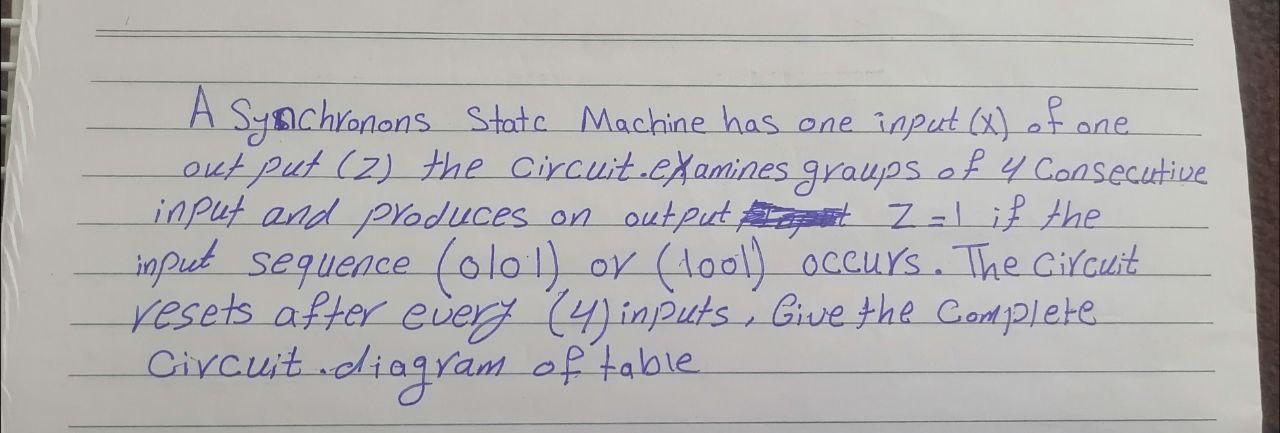 A Synchronons State Machine has one input (x) of one
out put (Z) the circuit.examines graups of 4 Consecutive
input and produces on output Z=1 if the
input sequence (0101) or (1001) occurs. The circuit
resets after every (4) inputs, Give the Complete
Circuit.diagram of table